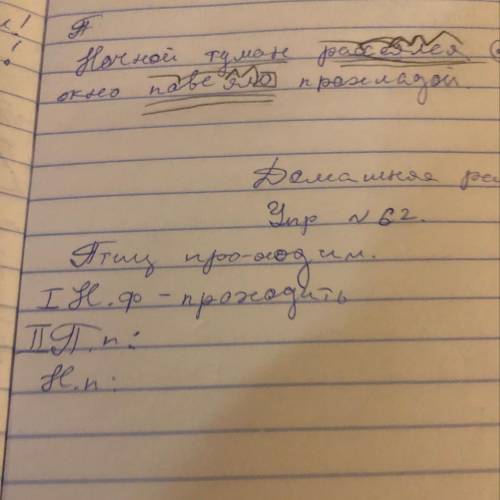 П
Ночной туман рассеялся
окно повеяло прохладой.
Домашняя
Упр №62.
Птиц про-ходим.
I Н.ф - проходить
II П.п:
Н.п: